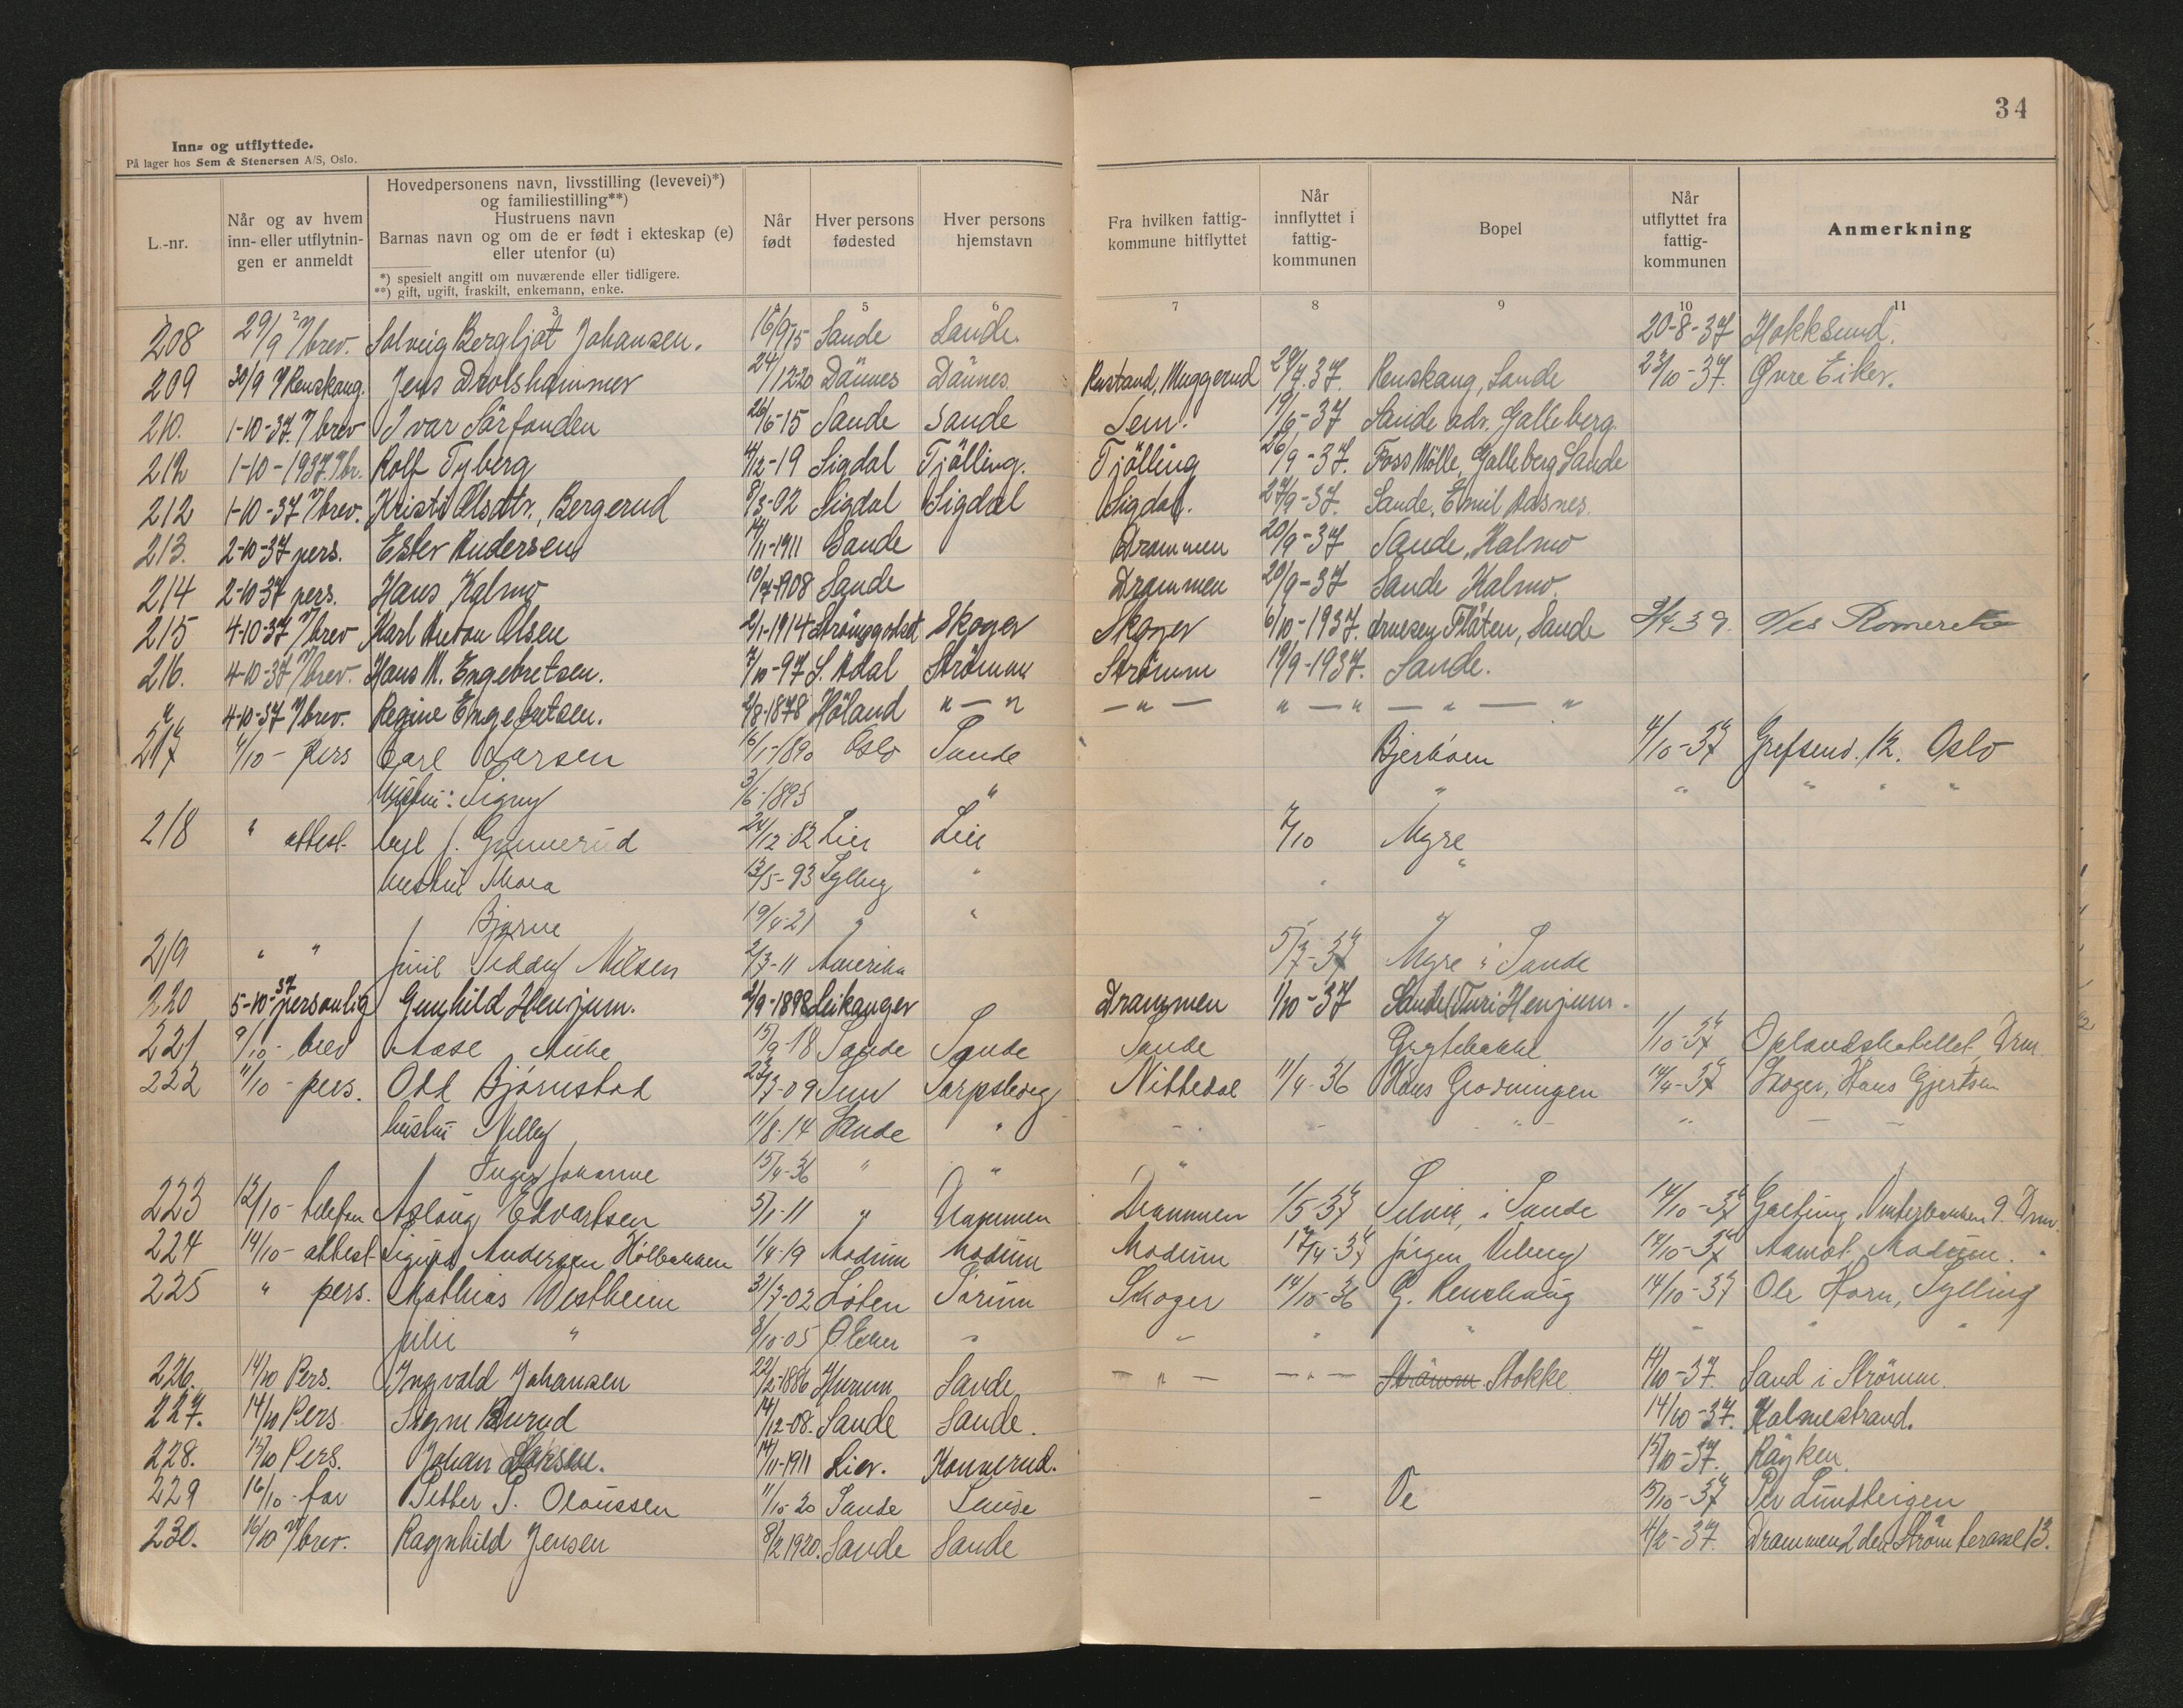 34
Inn- og utflyttede.
På lager hos Sem & Stenersen A/S, Oslo.
L.-nr.
Når og av hvem inn- eller utflytnin- gen er anmeldt
Hovedpersonens navn, livsstilling (levevei)*) og familiestilling**) Hustruens navn Barnas navn og om de er født i ekteskap (e) eller utenfor (u)
*) spesielt angitt om nuværende eller tidligere.
**) gift, ugift, fraskilt, enkemann, enke.
Når født
Hver persons fødested
Hver persons hjemstavn
Fra hvilken fattig- kommune hitflyttet
Når innflyttet i fattig- kommunen
Bopel
Når utflyttet fra fattig- kommunen
Anmerkning
2 3 5 6 7 8 9 10 11
208 29/9 m/brev. Solveig Bergljot Johansen. 16/9-15 Sande Sande. 20-8-37 Hokksund.
209 30/9 Renskaug. Jens Drolshammer 24/12-20 Dännes Dännes Rustand, Muggerud 29/7.37. Renskaug, Sande 23/10-37. Øvre Eiker.
210. 1-10-37. m/brev Ivar Sörfonden 26/6-15 Sande Sande Sem. 19/6-37 Sande adr. Galleberg.
212 1-10-1937. m/br. Rolf Tyberg 4/12-19 Sigdal Tjölling. Tjölling 26/9-37. Foss Mölle, Galleberg Sande
212 1-10-37 m/brev. Kristi Olsdtr., Bergerud 8/3-02 Sigdal Sigdal Sigdal. 27/9-37. Sande, Emil Aasnes.
213. 2-10-37 pers. Ester Andersen 14/11-1911 Sande Drammen 20/9-37 Sande, Kalmo
214 2-10-37 pers. Hans Kalmo 10/7-1908 Sande Drammen 20/9-37 Sande Kalmo.
215 4-10-37 m/brev Karl Anton Olsen 2/1-1914 Skoger Skoger 6/10-1937. Arnesen Flåten, Sande 9/4 39. Nes Romerike
216. 4-10-37 m/brev. Hans M. Engebretsen. 7/10-97 S. Adal Strömm Strömm 19/9-1937. Sande.
" 4-10-37 m/brev. Regine Engebretsen. 2/8-1878 Höland " — " — " — " — " — " — "
217 4/10 - pers Carl Larsen 16/1-1890 Oslo Sande Bjerkøen 4/10-37 Grefsenv. 12. Oslo
Hustru: Signy 3/6-1895 " " " " " "
218 " attest. J. Gunnerud 24/12-82 Lier Lier 7/10 Myre
hustru Thora 13/5-93 Sylling " " "
Bjarne 19/4-21 " "
219 " " Teddy Nilsen 2/3-11 Amerika 5/7-37 Myre i Sande
220 5-10-37 personlig Gunhild Henjum. 2/9-1898 Leikanger Drammen 1/10-37 Sande Turi Henjum.
221 9/10 - brev Aase Auke 15/9-18 Sande Sande Sande Grytebakke 1/10-37 Oplandshotellet, Drm.
222 11/10 - pers. Odd Bjørnstad 23/7-09 Sem Sarpsborg Nittedal 11/4-36 Hans Grodningen 14/4-37 Skoger, Hans Gjertsen
hustru Nelly 11/8-14 Sande "
Inger Johanne 15/4-36 " " "
223 12/10 - telefon Aslaug Edvartsen 5/1-11 " Drammen Drammen 1/5-37 Selvik, i Sande 14/10-37 Vinterbakken 9. Drm.
224 14/10 - attest Sigurd Andersen Holbakken 1/4-19 Modum Modum Modum 17/4-37 Jörgen Viberg 14/10-37 Aamot Modum.
225 " pers. Mathias Vestheim 31/7-02 Løten Sörum Skoger 14/10-36 G. Renskaug 14/10-37 Ole Horn, Sylling
Julie " 8/10-05 Ø. Eiker " " " " " " "
226. 14/10 Pers. Ingvald Johansen 22/2-1886 Hurum Sande — " — — " — Strömm Stokke 14/10-37. Sand i Strömm.
227. 14/10 Pers Signe Burud 14/12-08. Sande Sande. 14/10-37. Holmestrand.
228. 15/10 Pers. Johan Larsen. 14/11-1911 Lier. Konnerud. 15/10-37. Röyken.
229 16/10 - far Petter S. Olaussen 11/10-20 Sande Sande - Ve 15/10-37 Per Lundteigen
230. 16/10 m/brev. Ragnhild Jensen 8/2 1920. Sande Sande 4/2-37. Drammen 2den Strøm terasse 13.